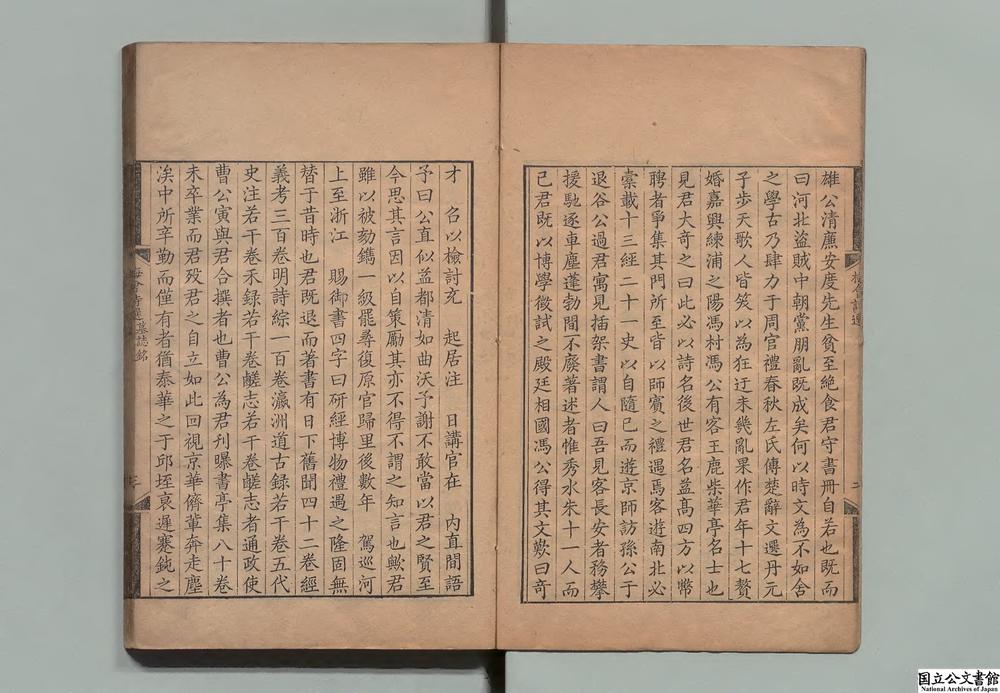 雄公清廉安度先生貧至絶食君守書冊自若也既而
曰河北盜賊中朝黨朋亂既成矣何以時文為不如舍
之學古乃肆力于周官禮春秋左氏傳楚辭文選丹元
子步天歌人皆笑以為狂迂未幾亂果作君年十七贅
婚嘉興練浦之陽馮村馮公有客王鹿柴華亭名士也
見君大奇之曰此必以詩名後世君名益髙四方以幣
聘者爭集其門所至皆以師賓之禮遇焉客遊南北必
橐載十三經二十一史以自隨已而遊京師訪孫公于
退谷公過君寓見插架書謂人曰吾見客長安者務攀
援馳逐車塵蓬勃間不廢著述者惟秀水朱十一人而
已君既以博學徵試之殿廷相國馮公得其文歎曰奇
二
才 名以檢討充 起居注 日講官在 内直間語
予曰公直似益都清如曲沃予謝不敢當以君之賢至
今思其言因以自策勵其亦不得不謂之知言也歟君
雖以被劾鐫一級罷尋復原官歸里後數年 駕巡河
上至浙江 賜御書四字曰研經博物禮遇之隆固無
替于昔時也君既退而著書有日下舊聞四十二卷經
義考三百卷明詩綜一百卷瀛洲道古録若干卷五代
史注若干卷禾録若干卷鹺志若干卷鹺志者通政使
曹公寅與君合撰者也曹公為君刊曝書亭集八十卷
未卒業而君歿君之自立如此回視京華儕輩奔走塵
涘中所卒勤而僅有者猶泰華之于邱垤哀遲蹇鈍之
墓誌銘
三
国立公文書館
National Archives of Japan